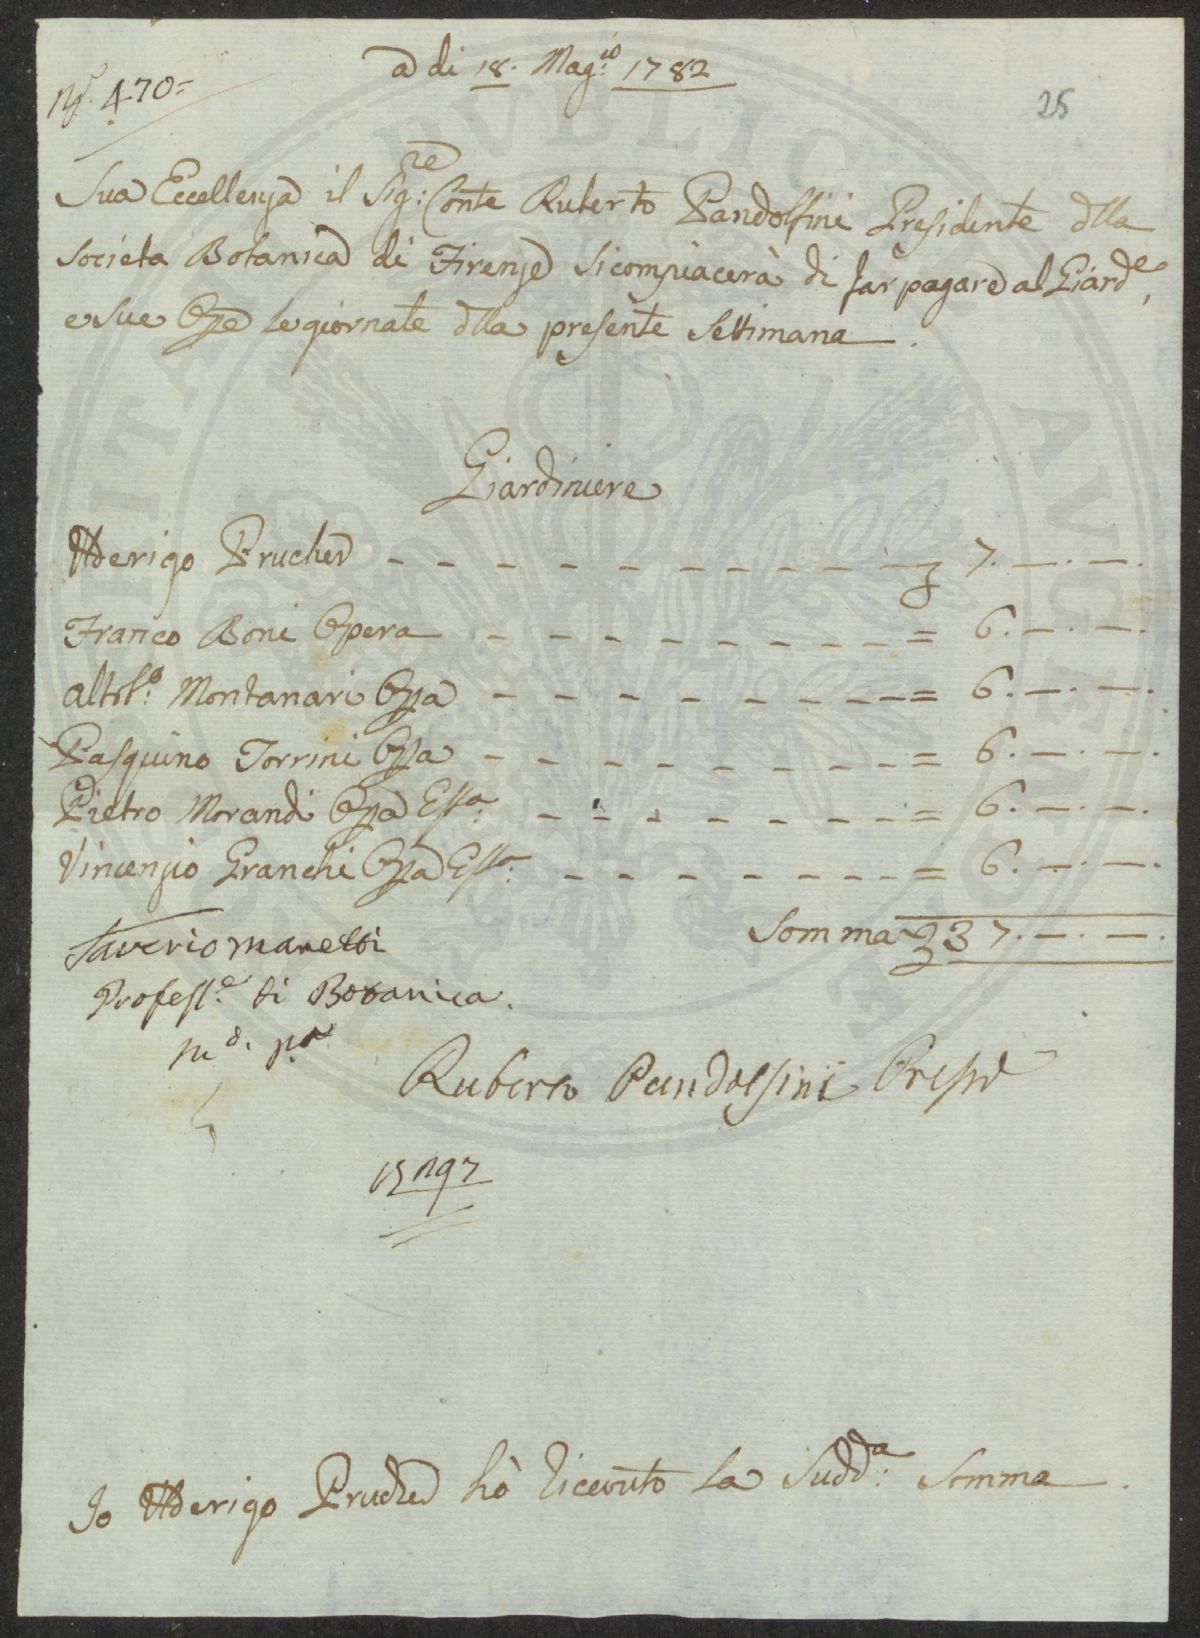 a di 18. Mag.io 1782
N.º 470=
25
Sua Eccellenza il Sig.re Conte Ruberto Pandolfini Presidente dlla
Società Botanica di Firenze si compiacerà di far pagare al Giard.e,
e sue Opre le giornate dlla presente Settimana.
Giardiniere
Prucher 7. —. —.
Franco Boni Opera = 6. —. —.
Montanari Opra = 6. —. —.
Pasquino Torrini Opra = 6. —. —.
Pietro Morandi Opra Ess.a = 6. —. —.
Vincenzio Granchi Opra Ess.a = 6. —. —.
Somma 37. —. —.
Saverio Manetti
Profess.e di Botanica.
Ruberto Pandolfini Presid.e
Io Prucher hò ricevuto la Sudd.a Somma.
PVBLIC